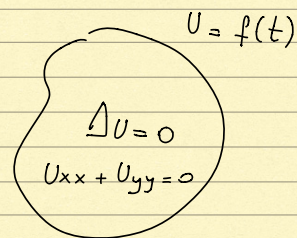 U = f(t)
ΔU = 0
Uxx + Uyy = 0